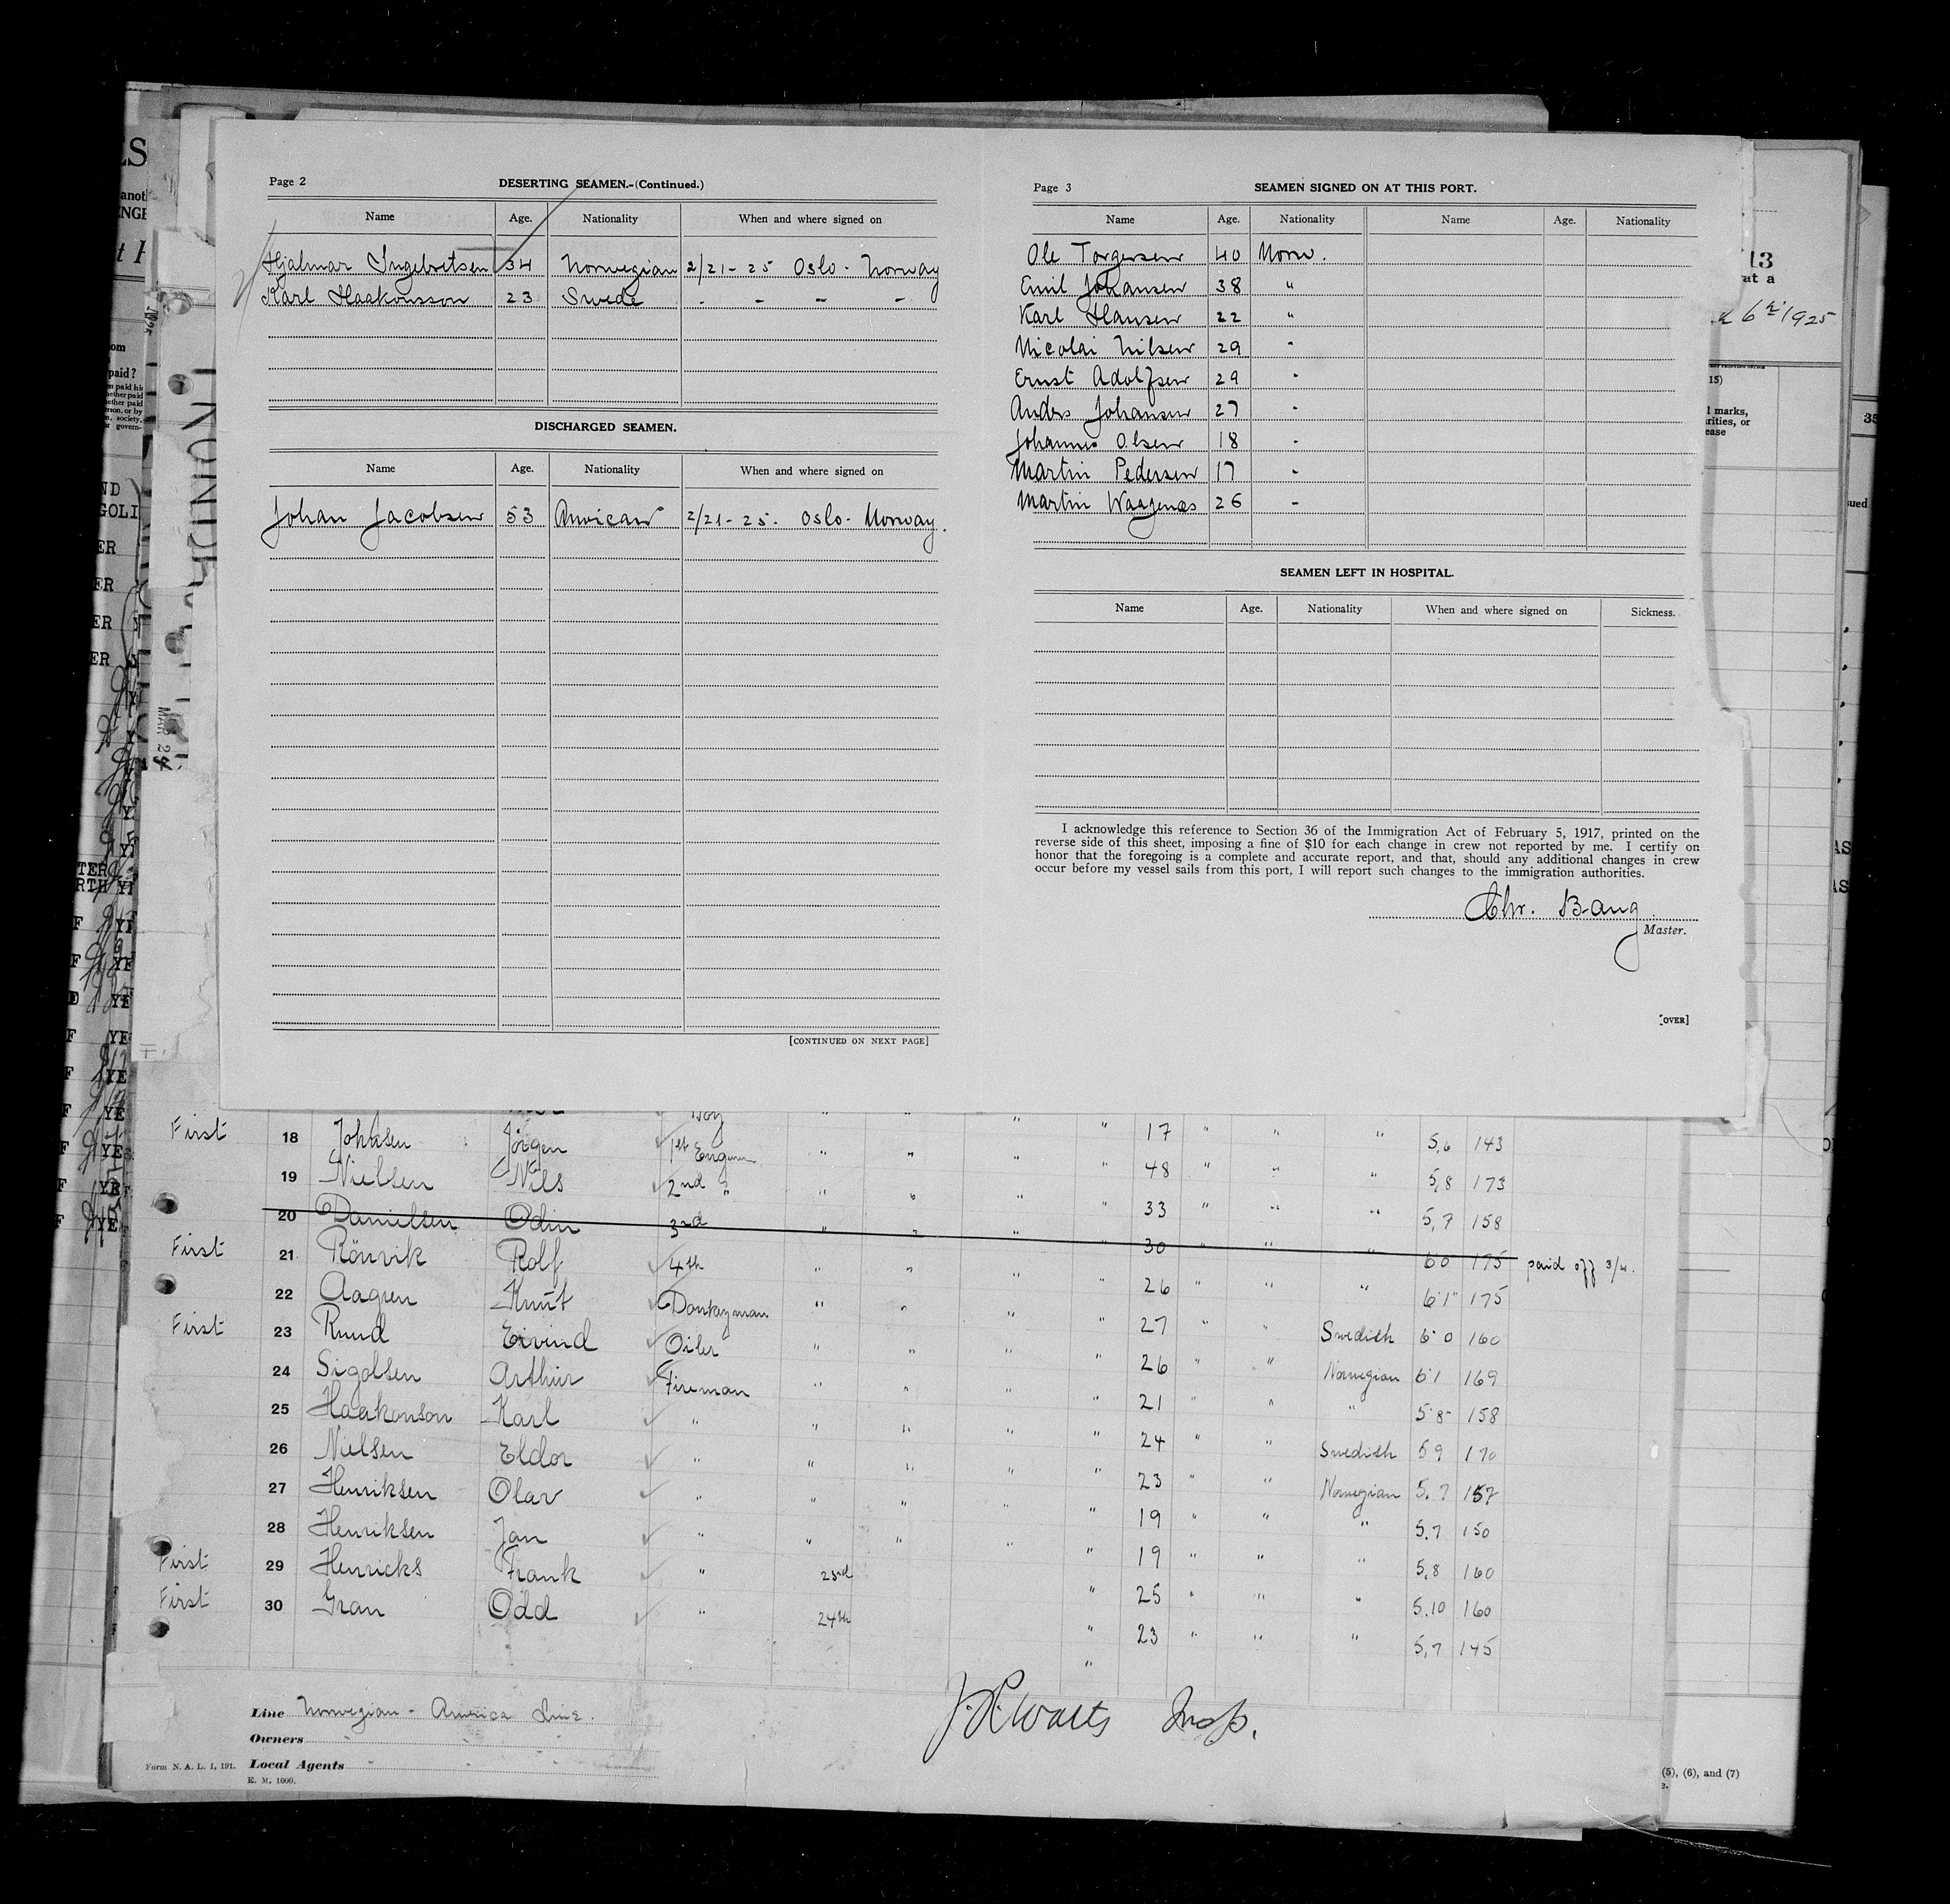 Page 2 DESERTING SEAMEN.-(Continued.)
Name Age. Nationality When and where signed on
Hjalmar Ingebretsen 34 Norwegian 2/21-25 Oslo - Norway
Karl Haakonsson 23 Swede - - - -
DISCHARGED SEAMEN.
Name Age. Nationality When and where signed on
Johan Jacobsen 53 American 2/21-25. Oslo - Norway.
[CONTINUED ON NEXT PAGE]
Page 3 SEAMEN SIGNED ON AT THIS PORT.
Name Age. Nationality Name Age. Nationality
Ole Torgersen 40 Norw.
Emil Johansen 38 "
Karl Hansen 22 "
Nicolai Nilsen 29 "
Ernst Adolfsen 29 "
Anders Johansen 27 "
Johannes Olsen 18 "
Martin Pedersen 17 "
Martin Waagenæs 26 "
SEAMEN LEFT IN HOSPITAL.
Name Age. Nationality When and where signed on Sickness.
I acknowledge this reference to Section 36 of the Immigration Act of February 5, 1917, printed on the
reverse side of this sheet, imposing a fine of $10 for each change in crew not reported by me. I certify on
honor that the foregoing is a complete and accurate report, and that, should any additional changes in crew
occur before my vessel sails from this port, I will report such changes to the immigration authorities.
Chr. Bang
Master.
[OVER]
6th 1925
Boy
First 18 Johnsen Jörgen 1st Engineer " " " " 17 " " " 5,6 143
19 Nielsen Nils 2nd " " " " " 48 " " " 5,8 173
20 Danielsen Odin 3rd " " " " 33 " " " 5,7 158
First 21 Rönvik Rolf 4th " " " " 30 " " " 6 0 175 paid off 3/4.
22 Aagren Knut Donkeyman " " " " 26 " " " 6'1" 175
First 23 Ruud Eivind Oiler " " " " 27 " " Swedish 6 0 160
24 Sigolsen Arthur Fireman " " " " 26 " " Norwegian 6'1 169
25 Haakonson Karl " " " " " 21 " " " 5'8" 158
26 Nielsen Eldor " " " " " 24 " " Swedish 5 9 170
27 Henriksen Olav " " " " " 23 " " Norwegian 5.7 157
28 Henriksen Jan " " " " 19 " " " 5.7 150
First 29 Henricks Frank " 23rd " 19 " " " 5,8 160
First 30 Gran Odd " 24th " 25 " " " 5.10 160
" 23 " " " 5,7 145
Line Norwegian - America Line.
Owners
Form N. A. L. 1, 191. Local Agents
E. M. 1000.
J. R. Watts Insp.
(5), (6), and (7)